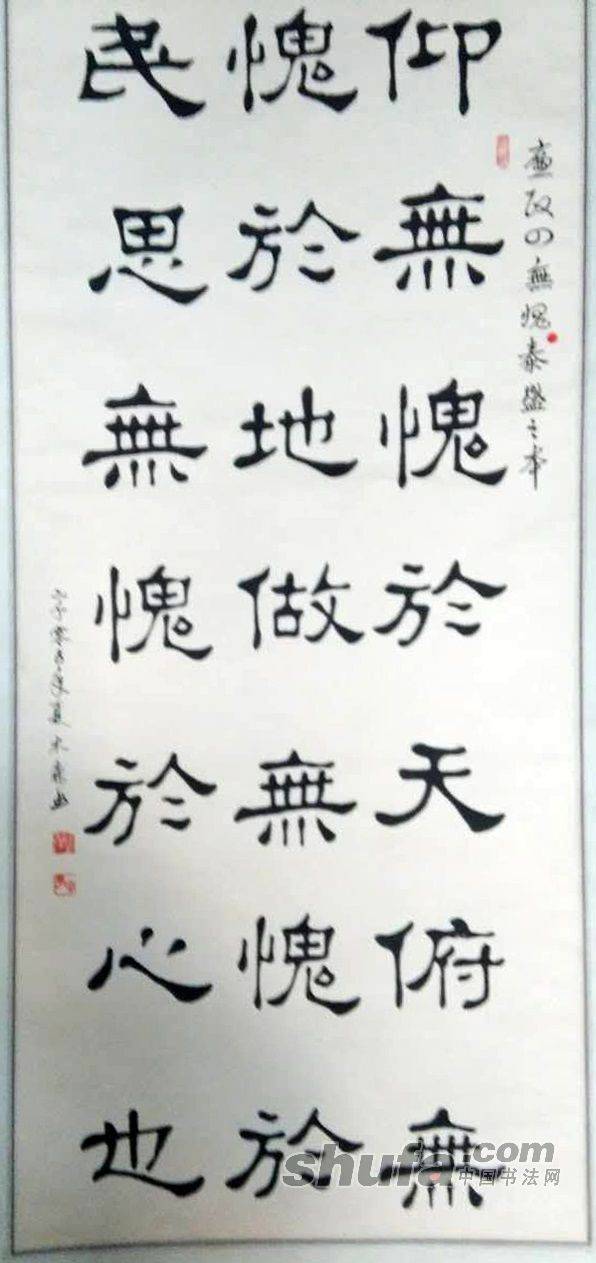 廉政四無愧泰盛之本
仰無愧於天俯無
愧於地做無愧於
民思無愧於心也
shufa.com
中国书法网